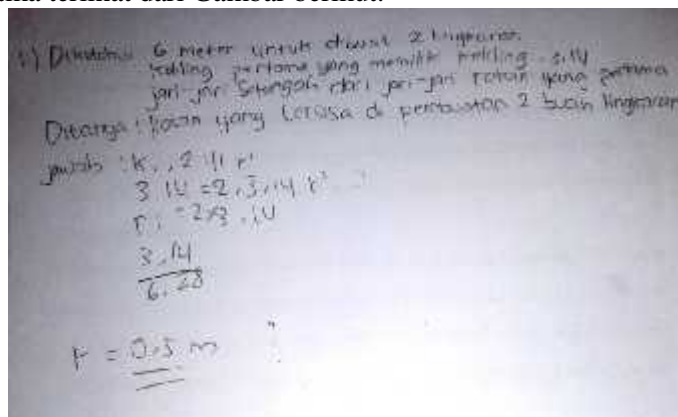 terlihat dari Gambar berikut.
1.) Diketahui 6 meter untuk dibuat 2 lingkaran
keliling pertama yang memiliki keliling 3,14
jari-jari Setengah dari jari-jari rotan yang pertama
Ditanya : Rotan yang tersisa di pembuatan 2 buah lingkaran
jawab : K.
3.14 = 2.3,14 r
3.14
6.28
r = 0.5 m